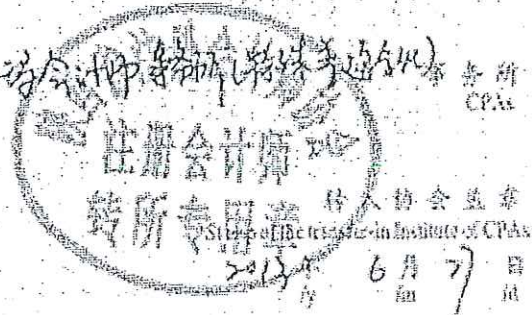 会计师事务所(特殊普通合伙) 事务所
CPAs
注册会计师
转所专用章
转入协会盖章
Stamp of the transfer-in Institute of CPAs
2013年 6月 7日
/y /m /d